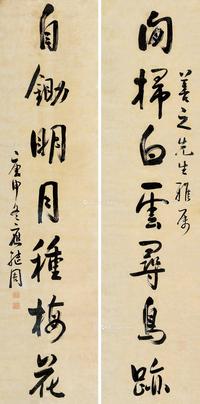 閒掃白雲尋鳥跡
善之先生雅屬
自鋤明月種梅花
庚申冬應繼周